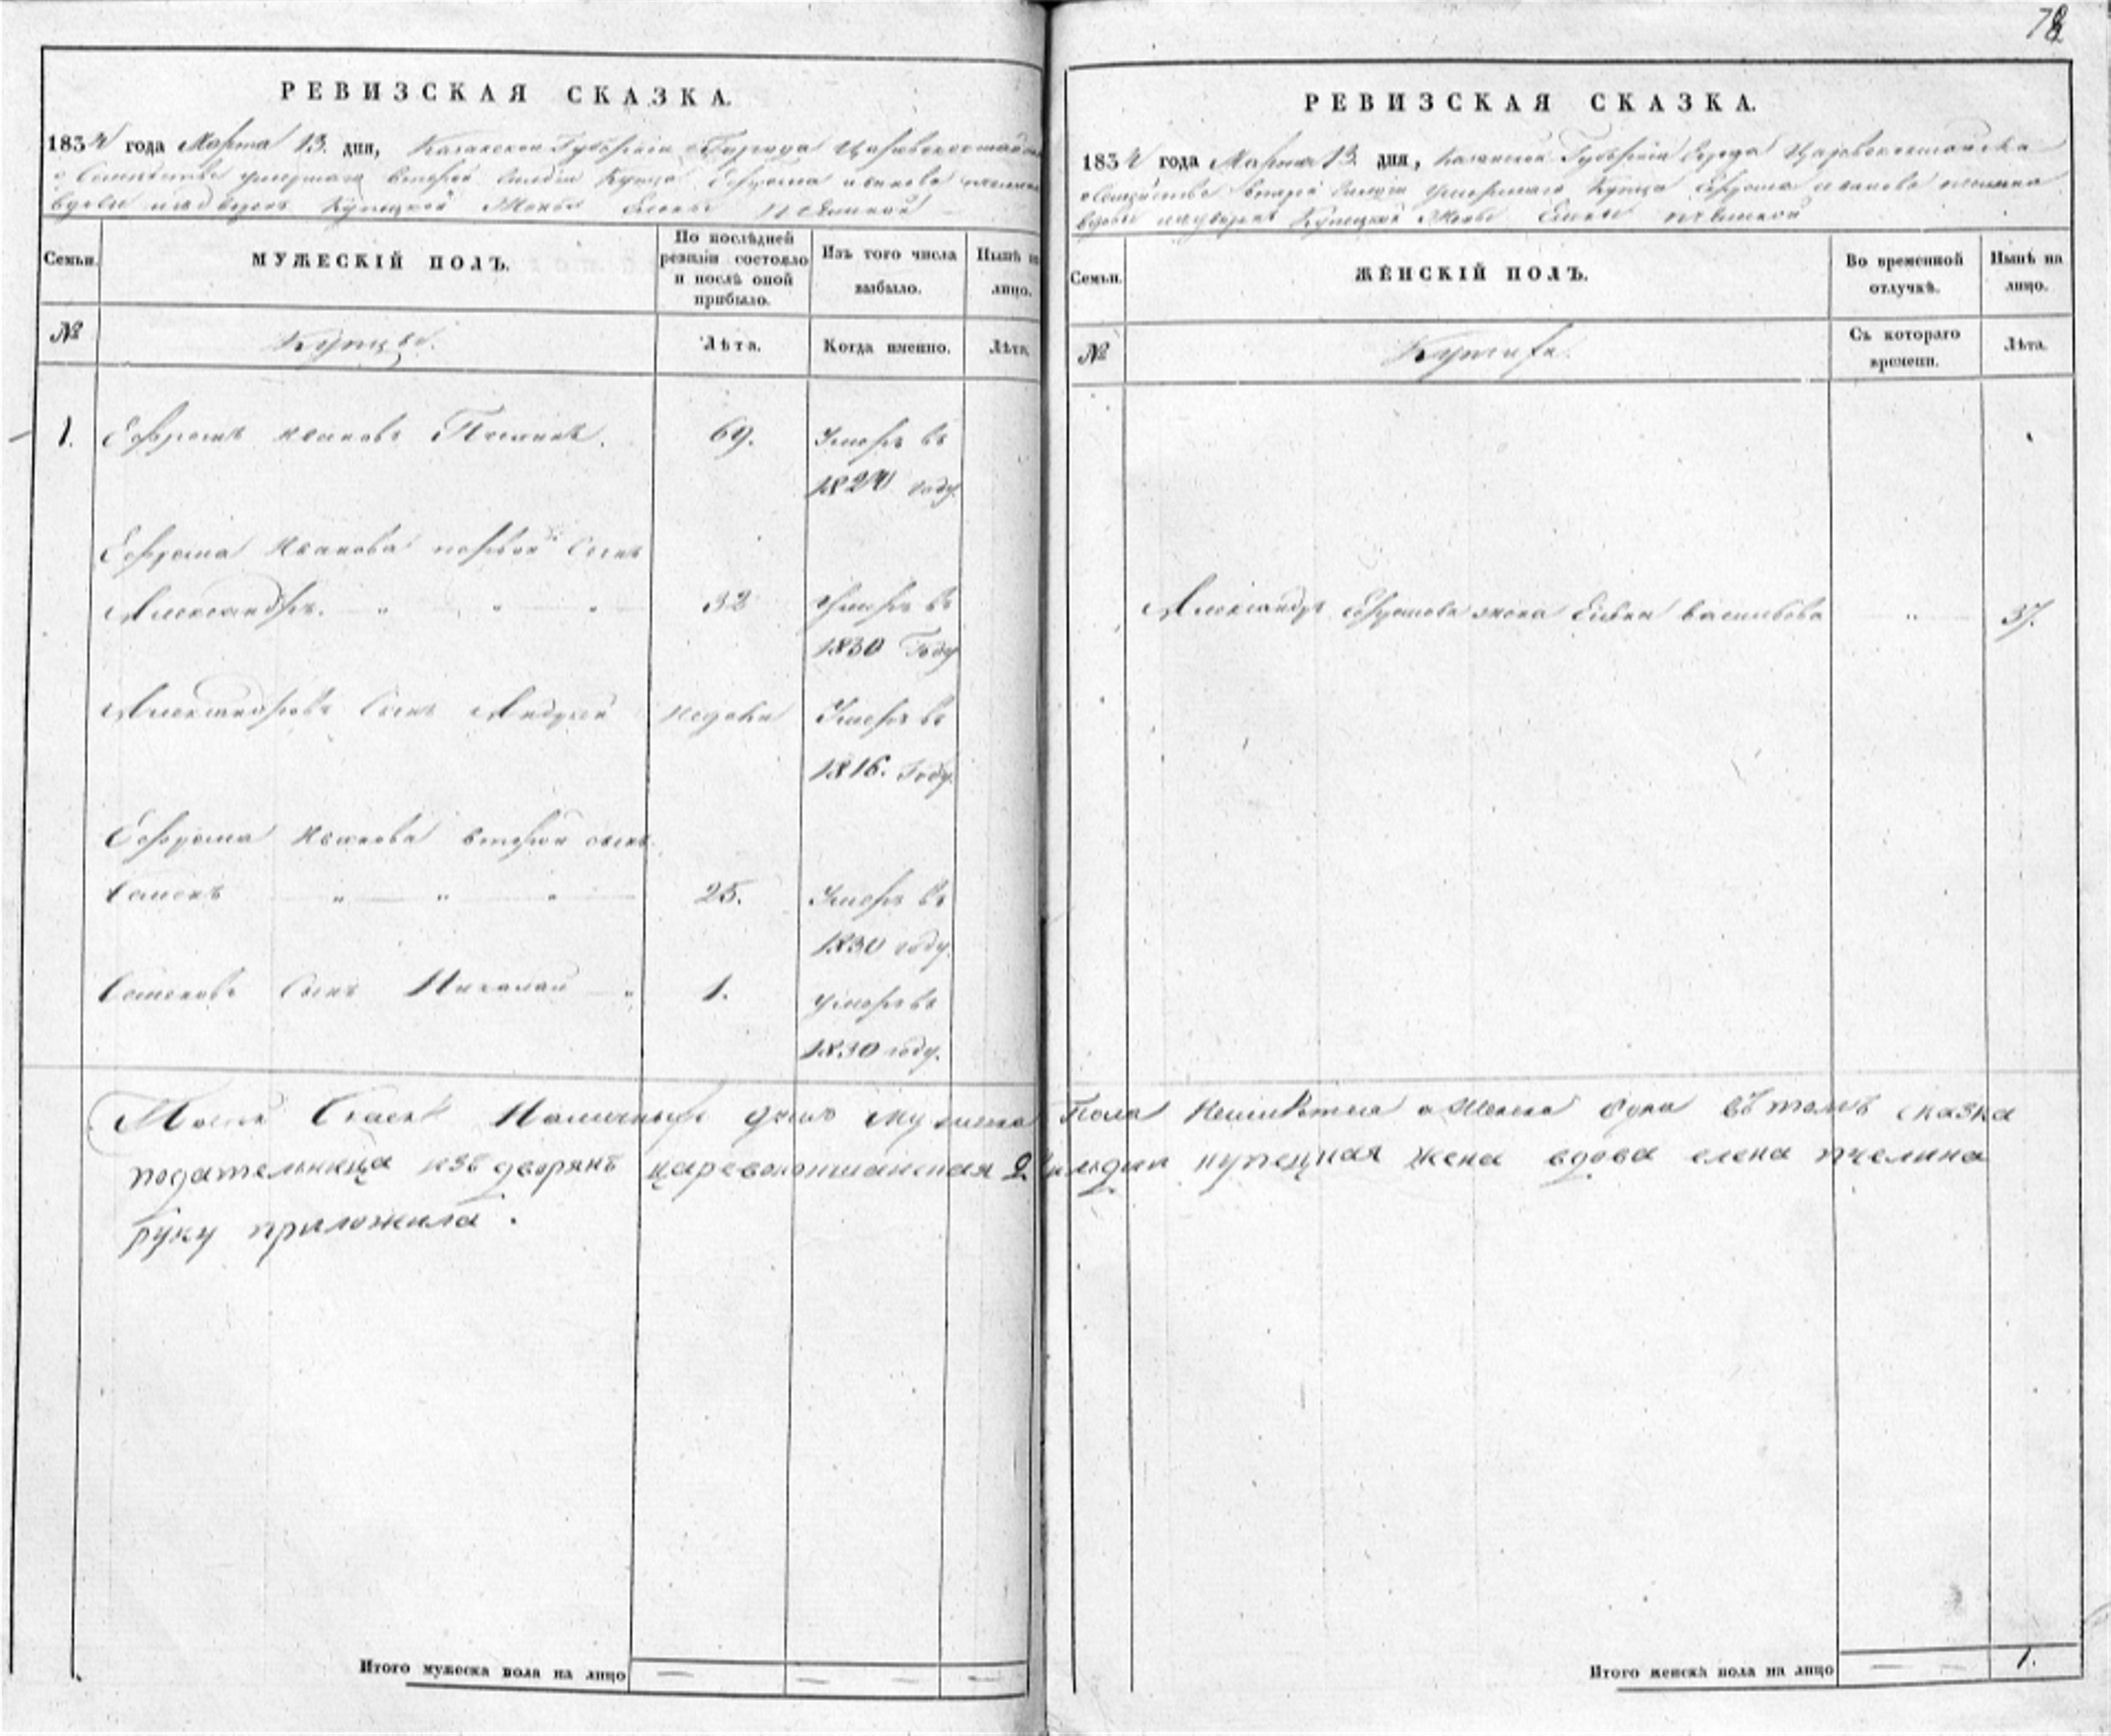 78
РЕВИЗСКАЯ СКАЗКА.
1834 года Марта 13. дня, Казанской Губернии Города Царевококшайска
о Семействе умершаго второй гильдии Купца Ефрема Иванова
вдовы из дворян Купецкой Жены Елены Пчелиной
Семьи.
МУЖЕСКІЙ ПОЛЪ.
По послѣдней ревизіи состояло и послѣ оной прибыло.
Изъ того числа выбыло.
Нынѣ на лицо.
№
Купцы.
Лѣта.
Когда именно.
Лѣта.
1. Ефремъ Ивановъ Пчелинъ. 69. Умеръ въ
1824 году.
Ефрема Иванова первой Сынъ
Александръ. 32 Умеръ въ
1830 Году
Александровъ Сынъ Андрей Умеръ въ
1816. Году.
Ефрема Иванова второй сынъ
Семенъ 25. Умеръ въ
1830 году.
Семеновъ Сынъ Николай 1. умеръ въ
1830 году.
РЕВИЗСКАЯ СКАЗКА.
1834 года Марта 13. дня, Казанской Губернии Города Царевококшайска
о Семействе второй Гильдии умершаго Купца Ефрема Иванова Пчелина
вдовы из дворян Купецкой Жены Елены Пчелиной
Семьи.
ЖЕНСКІЙ ПОЛЪ.
Во временной отлучкѣ.
Нынѣ на лицо.
№
Съ котораго времени.
Лѣта.
Александра Ефремова жена Елена Васильева 37.
душъ мужеска Пола а Женска Одна въ томъ сказка
подательница изъ дворянъ царевококшайская 2 гильдии купецкая жена вдова елена пчелина
руку приложила.
Итого мужеска пола на лицо
Итого женска пола на лицо 1.